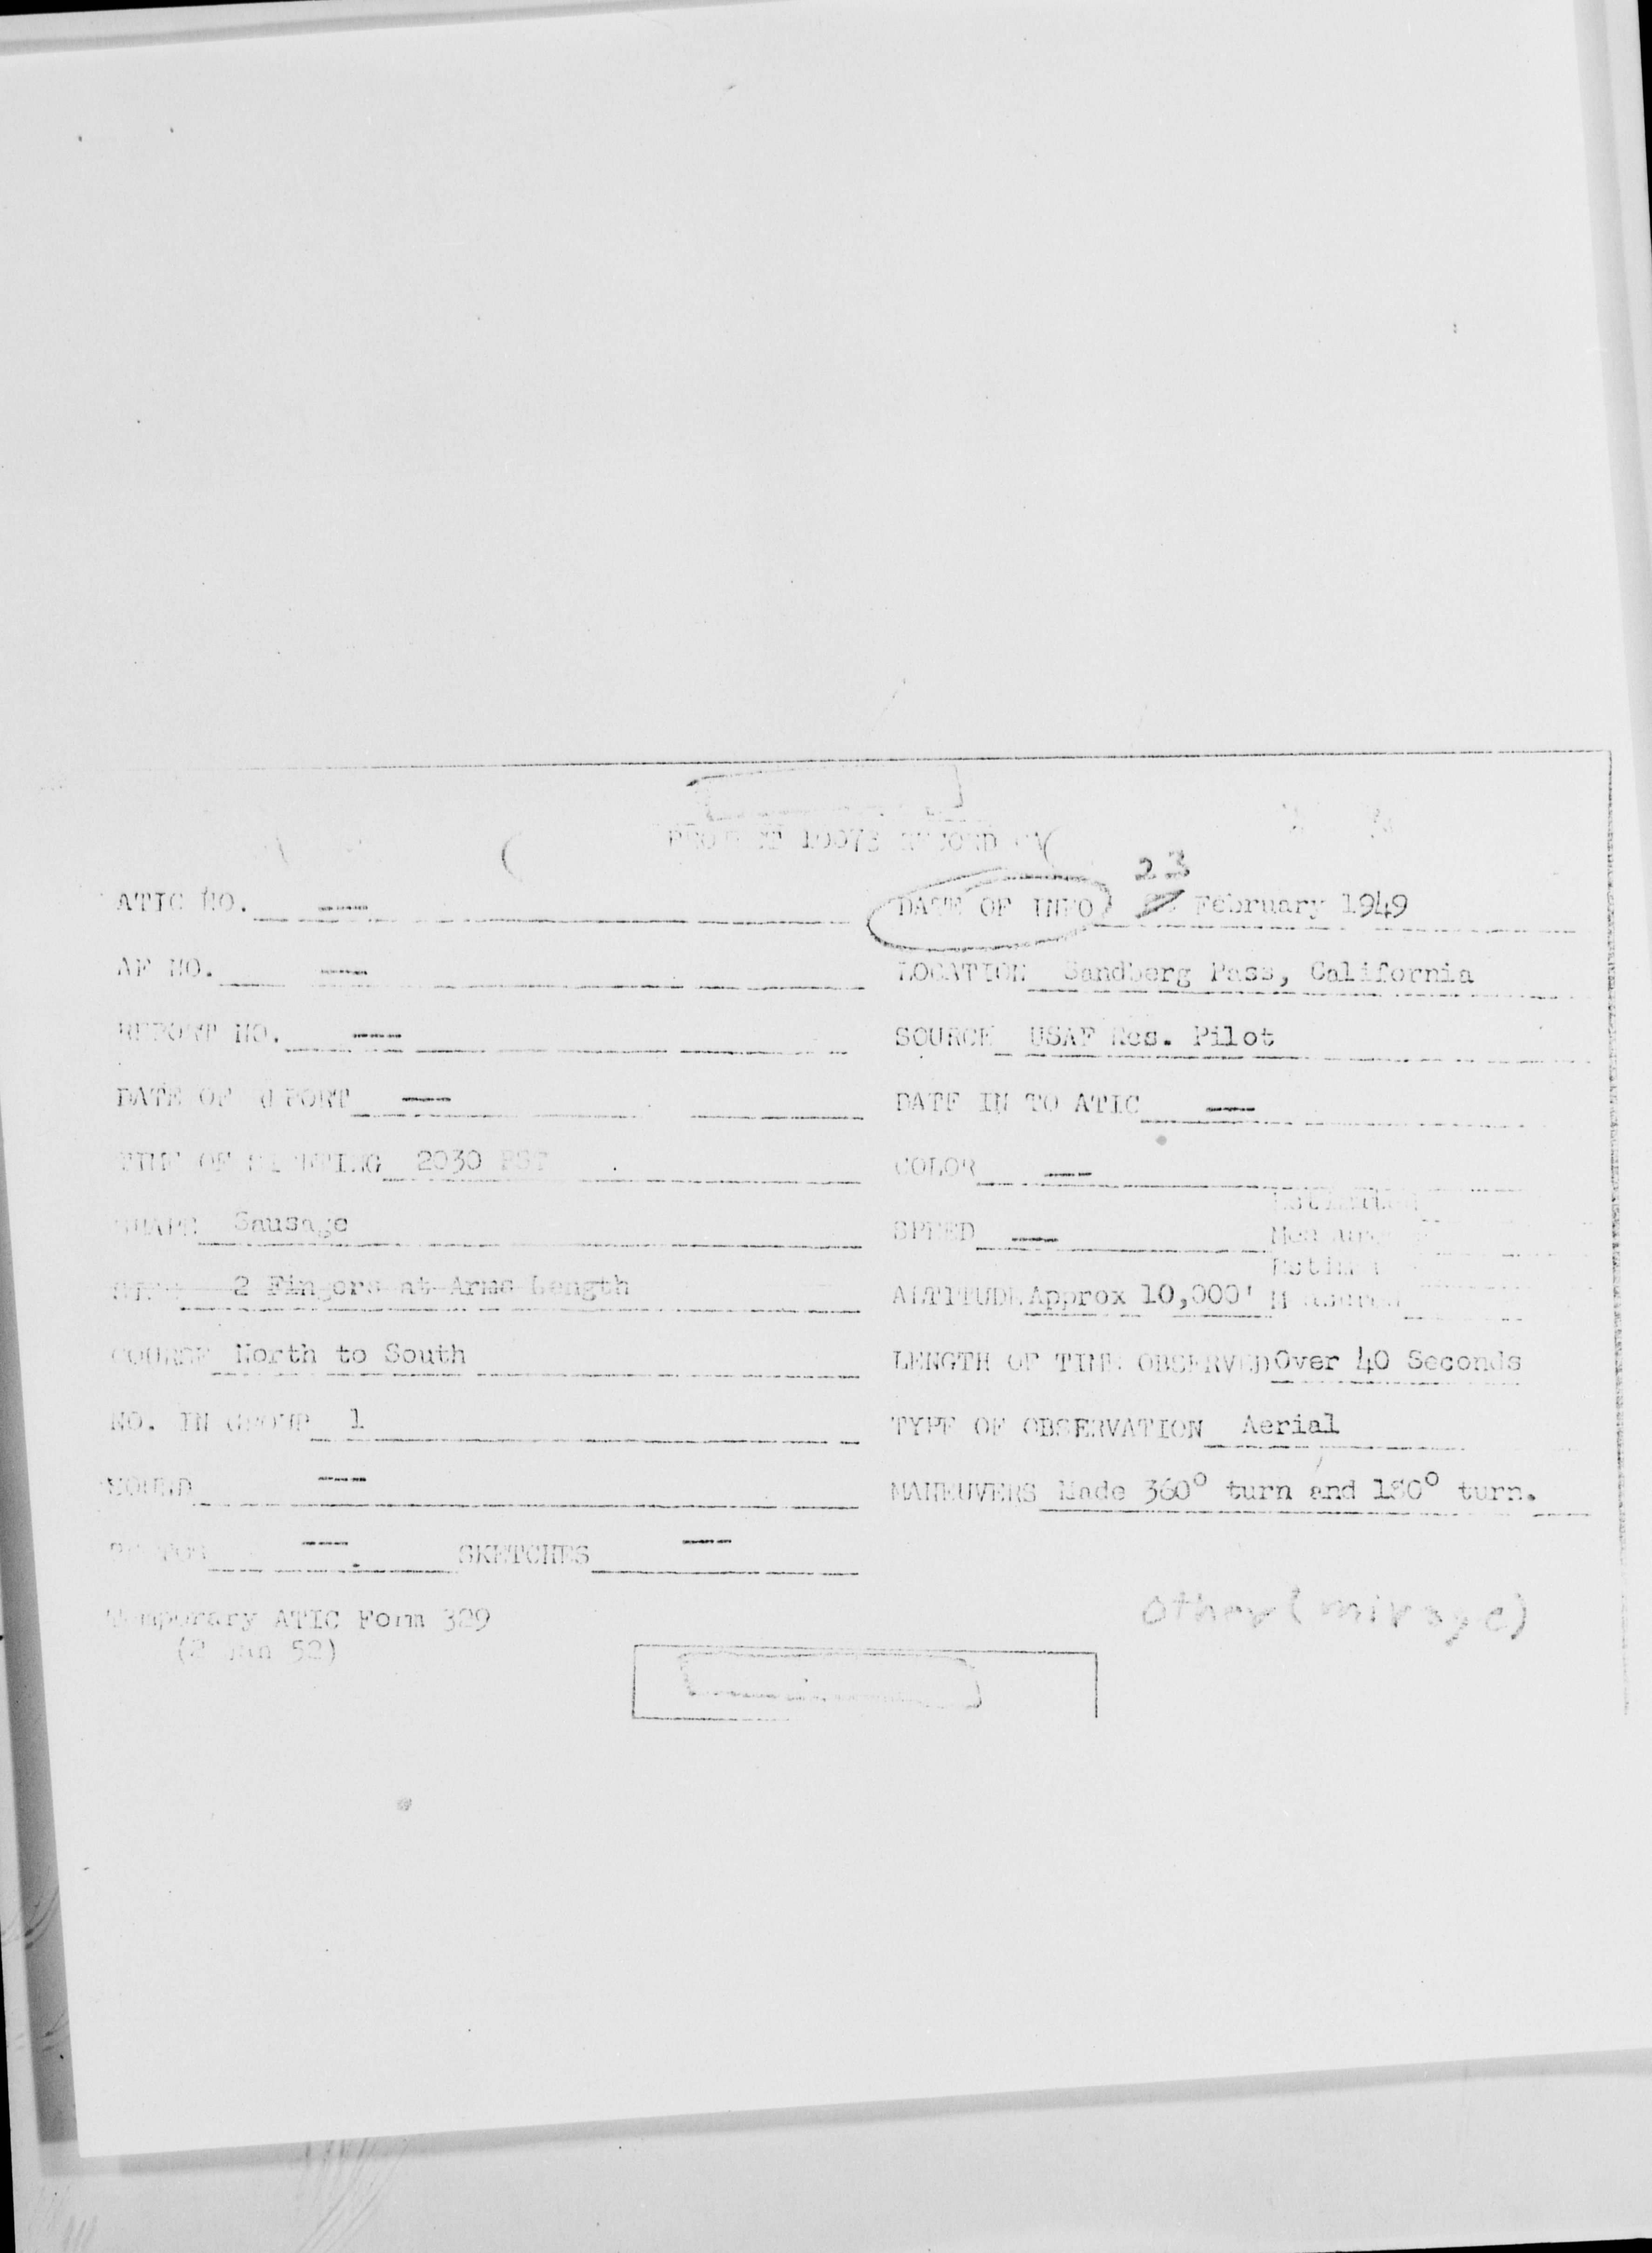 10073
23
ATIC NO. --- DATE OF INFO February 1949
AF NO. --- LOCATION Sandberg Pass, California
REPORT NO. --- SOURCE USAF Res. Pilot
DATE OF REPORT --- DATE IN TO ATIC ---
TIME OF SIGHTING 2030 PST COLOR ---
SHAPE Sausage SPEED ---
2 Fingers at Arms Length ALTITUDE Approx 10,000'
COURSE North to South LENGTH OF TIME OBSERVED Over 40 Seconds
NO. IN GROUP 1 TYPE OF OBSERVATION Aerial
SOUND --- MANEUVERS Made 360° turn and 180° turn.
--- SKETCHES ---
Temporary ATIC Form 329
(2 Jan 52)
other (mirage)